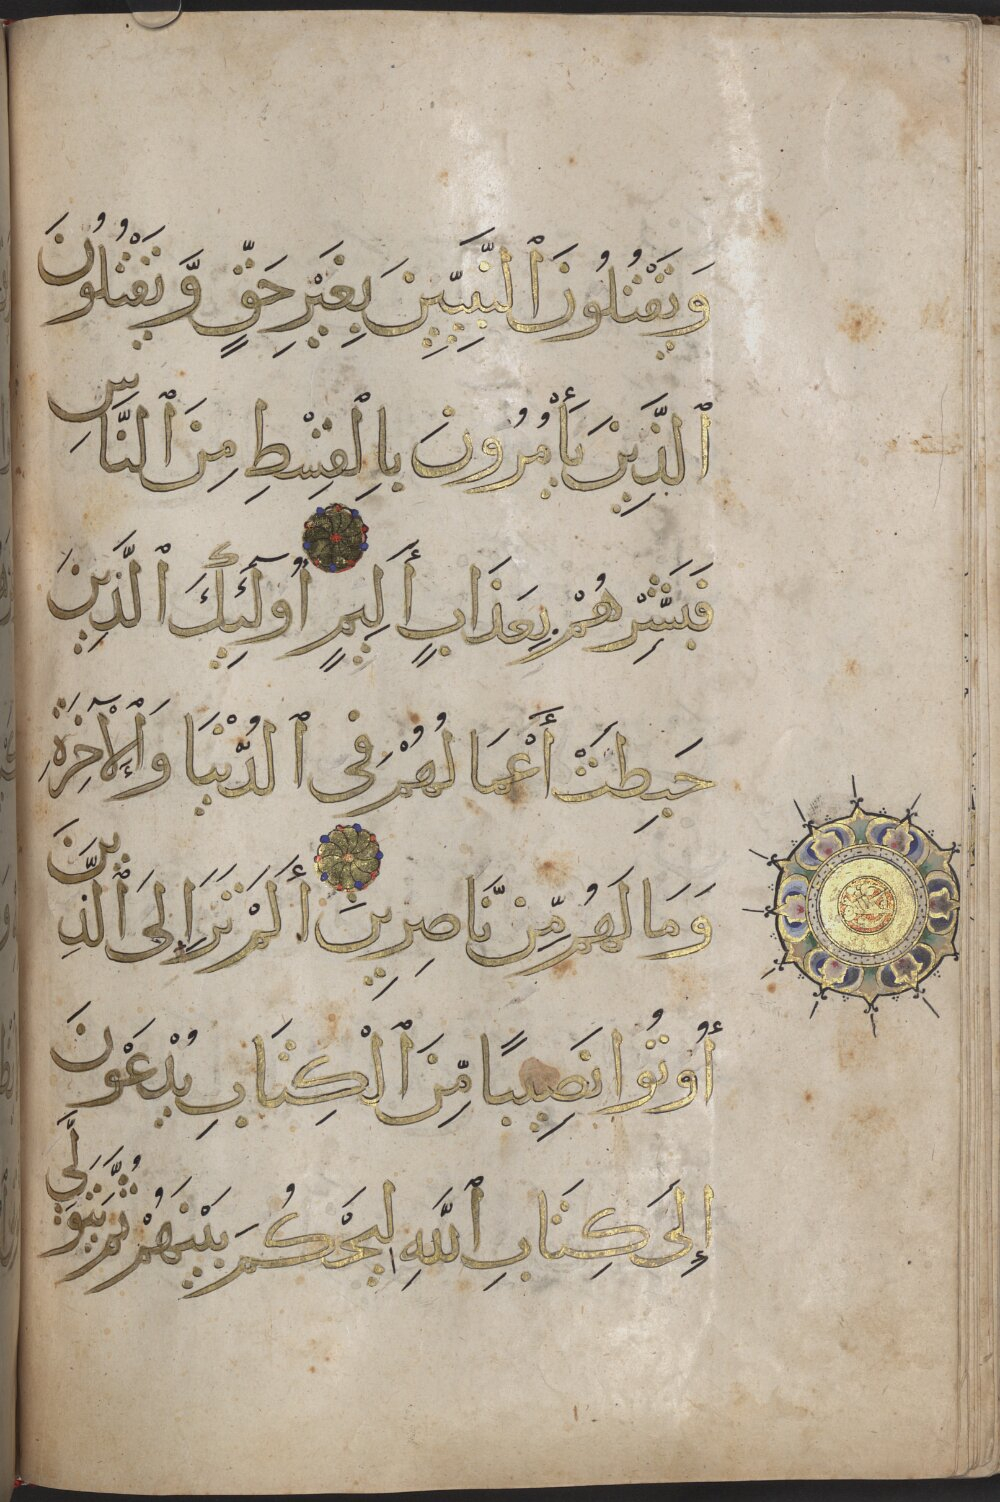 وَيَقْتُلُونَ ٱلنَّبِيِّينَ بِغَيْرِ حَقٍّ وَّيَقْتُلُونَ
ٱلَّذِينَ يَأْمُرُونَ بِالْقِسْطِ مِنَ ٱلنَّاسِ
فَبَشِّرْهُمْ بِعَذَابٍ أَلِيمٍ أُولَٓئِكَ ٱلَّذِينَ
حَبِطَتْ أَعْمَالُهُمْ فِى ٱلدُّنْيَا وَٱلْآخِرَةِ
وَمَا لَهُم مِّن نَّاصِرِينَ أَلَمْ تَرَ إِلَى ٱلَّذِينَ
أُوتُوا نَصِيبًا مِّنَ ٱلْكِتَابِ يُدْعَوْنَ
إِلَى كِتَابِ ٱللَّهِ لِيَحْكُمَ بَيْنَهُمْ ثُمَّ يَتَوَلَّى